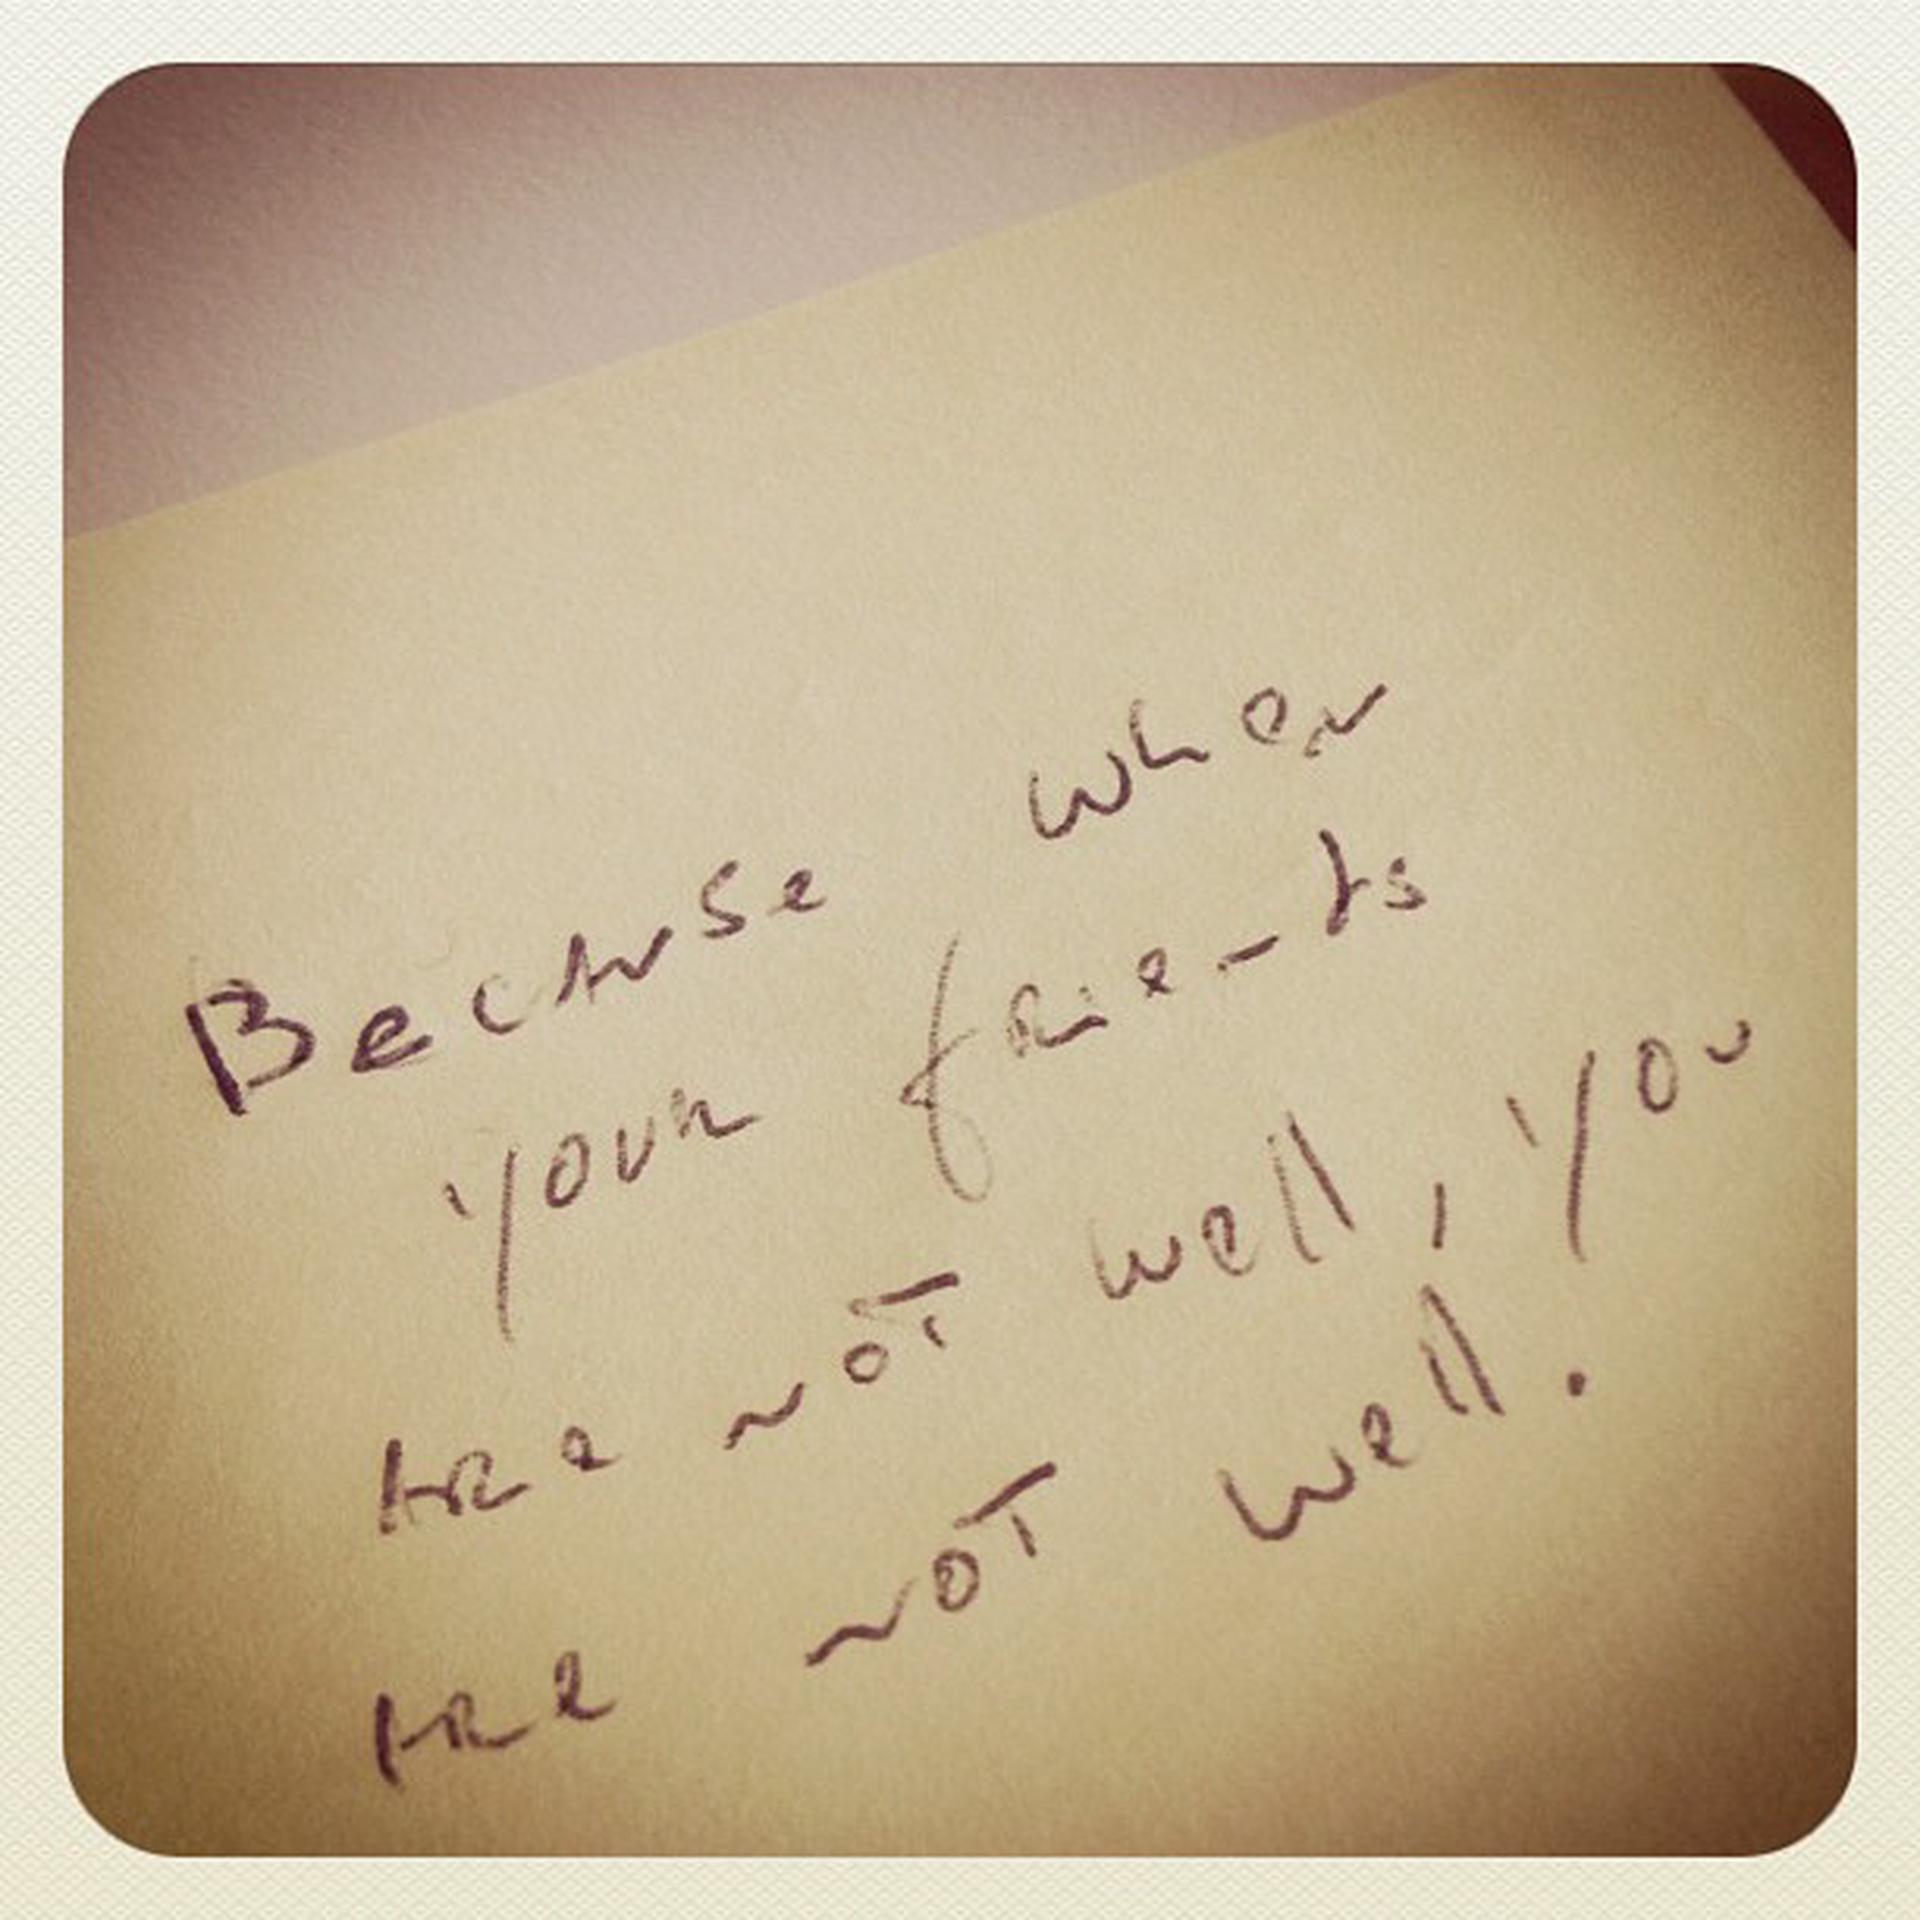 Because when
your friends
are not well, you
are not well.